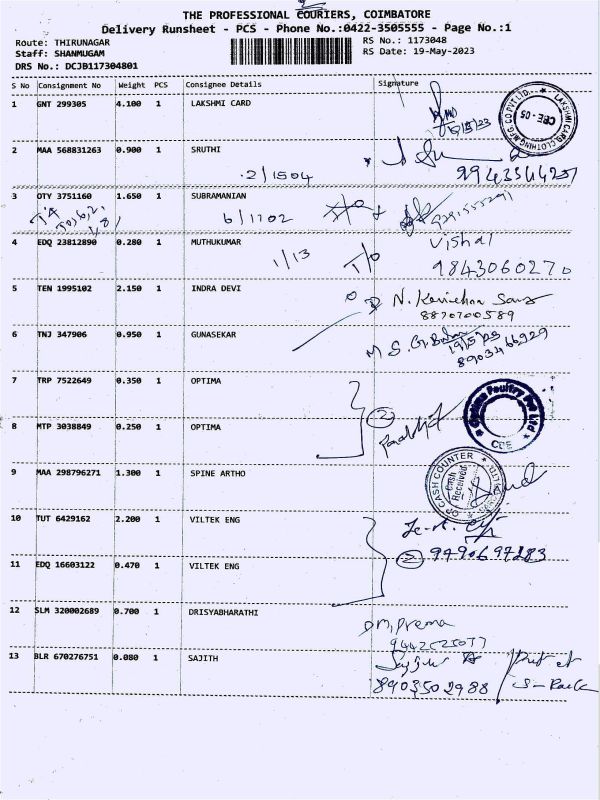 THE PROFESSIONAL COURIERS, COIMBATORE
Delivery Runsheet - PCS - Phone No.:0422-3505555 - Page No.:1
Route: THIRUNAGAR RS No.: 1173048
Staff: SHANMUGAM RS Date: 19-May-2023
DRS No.: DCJB117304801
S No Consignment No Weight PCS Consignee Details Signature
1 GNT 299305 4.100 1 LAKSHMI CARD
19/5/23
LAKSHMI CARD CLOTHING MFG CO PVT LTD. CBE - 05
2 MAA 568831263 0.900 1 SRUTHI
2/1504
3 OTY 3751160 1.650 1 SUBRAMANIAN
6/1102
4 EDQ 23812890 0.280 1 MUTHUKUMAR Vishal
1/13 T/o 9843060270
5 TEN 1995102 2.150 1 INDRA DEVI
8870700589
6 TNJ 347906 0.950 1 GUNASEKAR
19/5/23
8903466929
7 TRP 7522649 0.350 1 OPTIMA
2
8 MTP 3038849 0.250 1 OPTIMA
Optima Poultry Pvt Ltd CBE
9 MAA 298796271 1.300 1 SPINE ARTHO
OP CASH COUNTER Cash Received
10 TUT 6429162 2.200 1 VILTEK ENG
2 9790697283
11 EDQ 16603122 0.470 1 VILTEK ENG
12 SLM 320002689 0.700 1 DRISYABHARATHI
Prema
13 BLR 670276751 0.080 1 SAJITH
8903502988